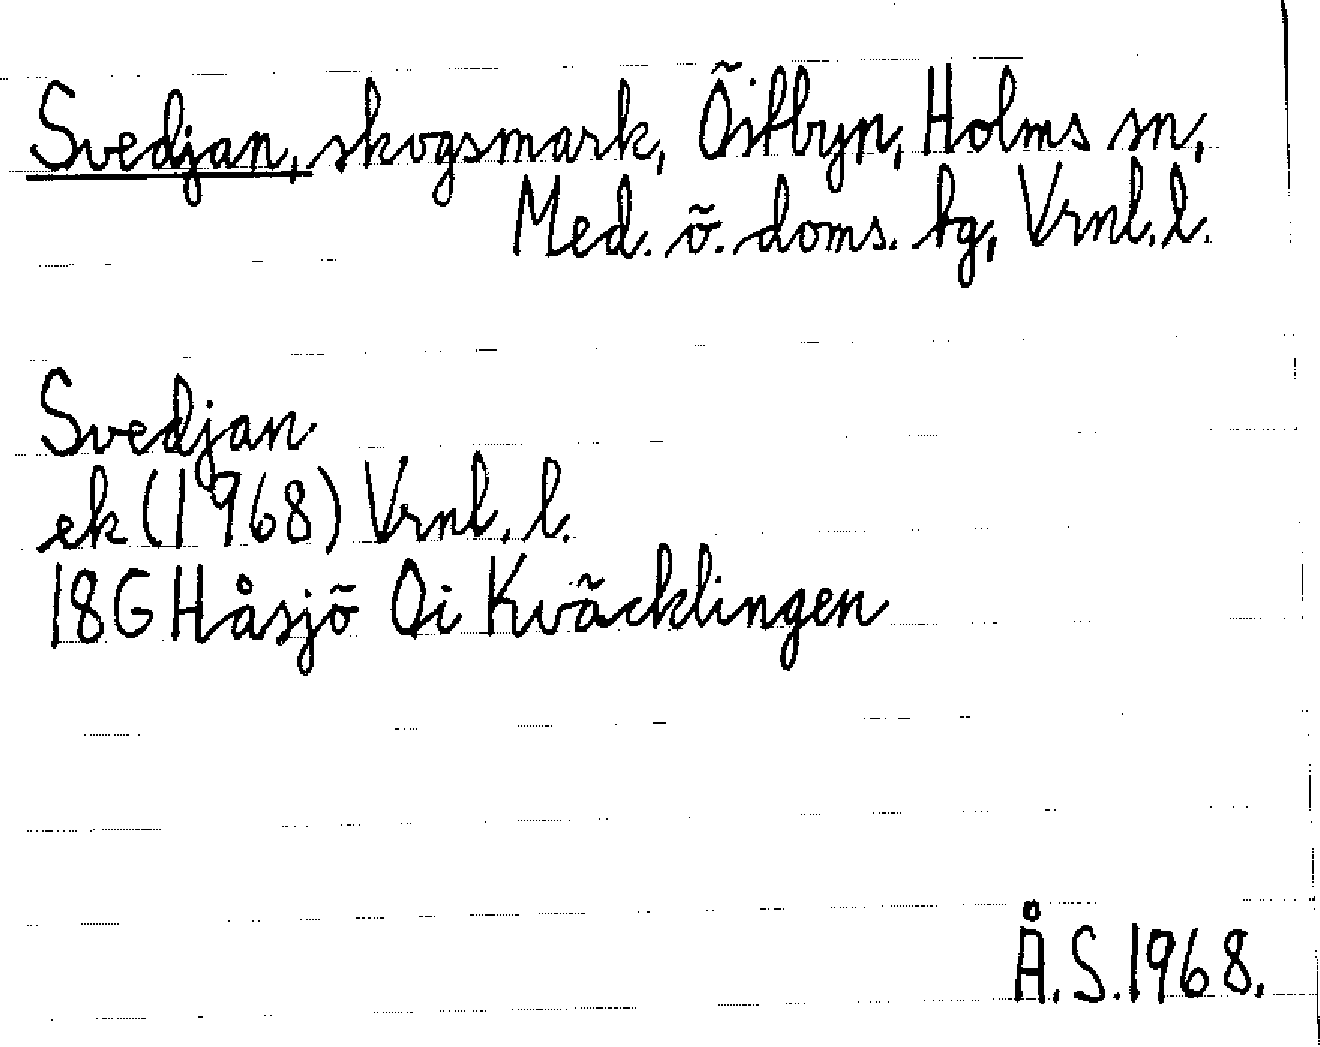 Svedjan, skogsmark, Östbyn, Holms sn,
Med. ö. doms. tg, Vrnl. l.
Svedjan
ek (1968) Vrnl. l.
18G Håsjö Oi Kväcklingen
Å.S. 1968.